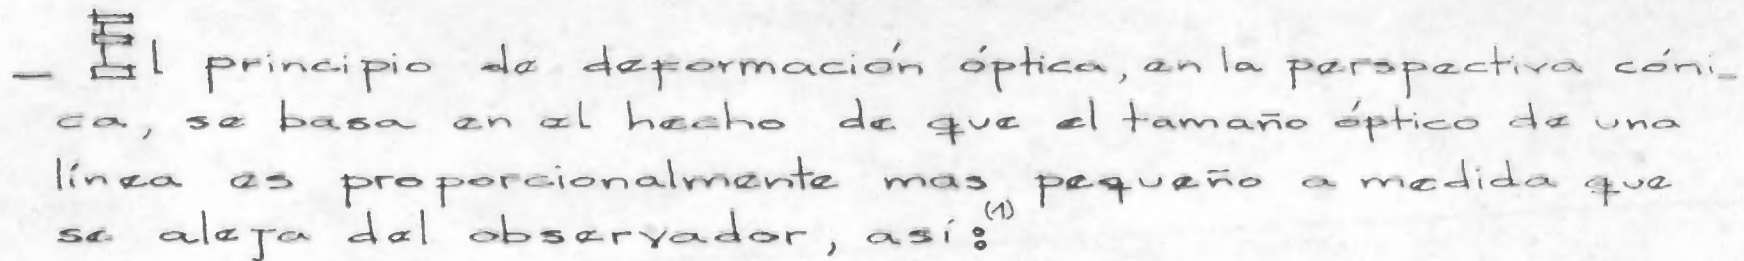 _ El principio de deformación óptica, en la perspectiva cóni_
ca, se basa en el hecho de que el tamaño óptico de una
línea es proporcionalmente mas pequeño a medida que
se aleja del observador, así:(1)